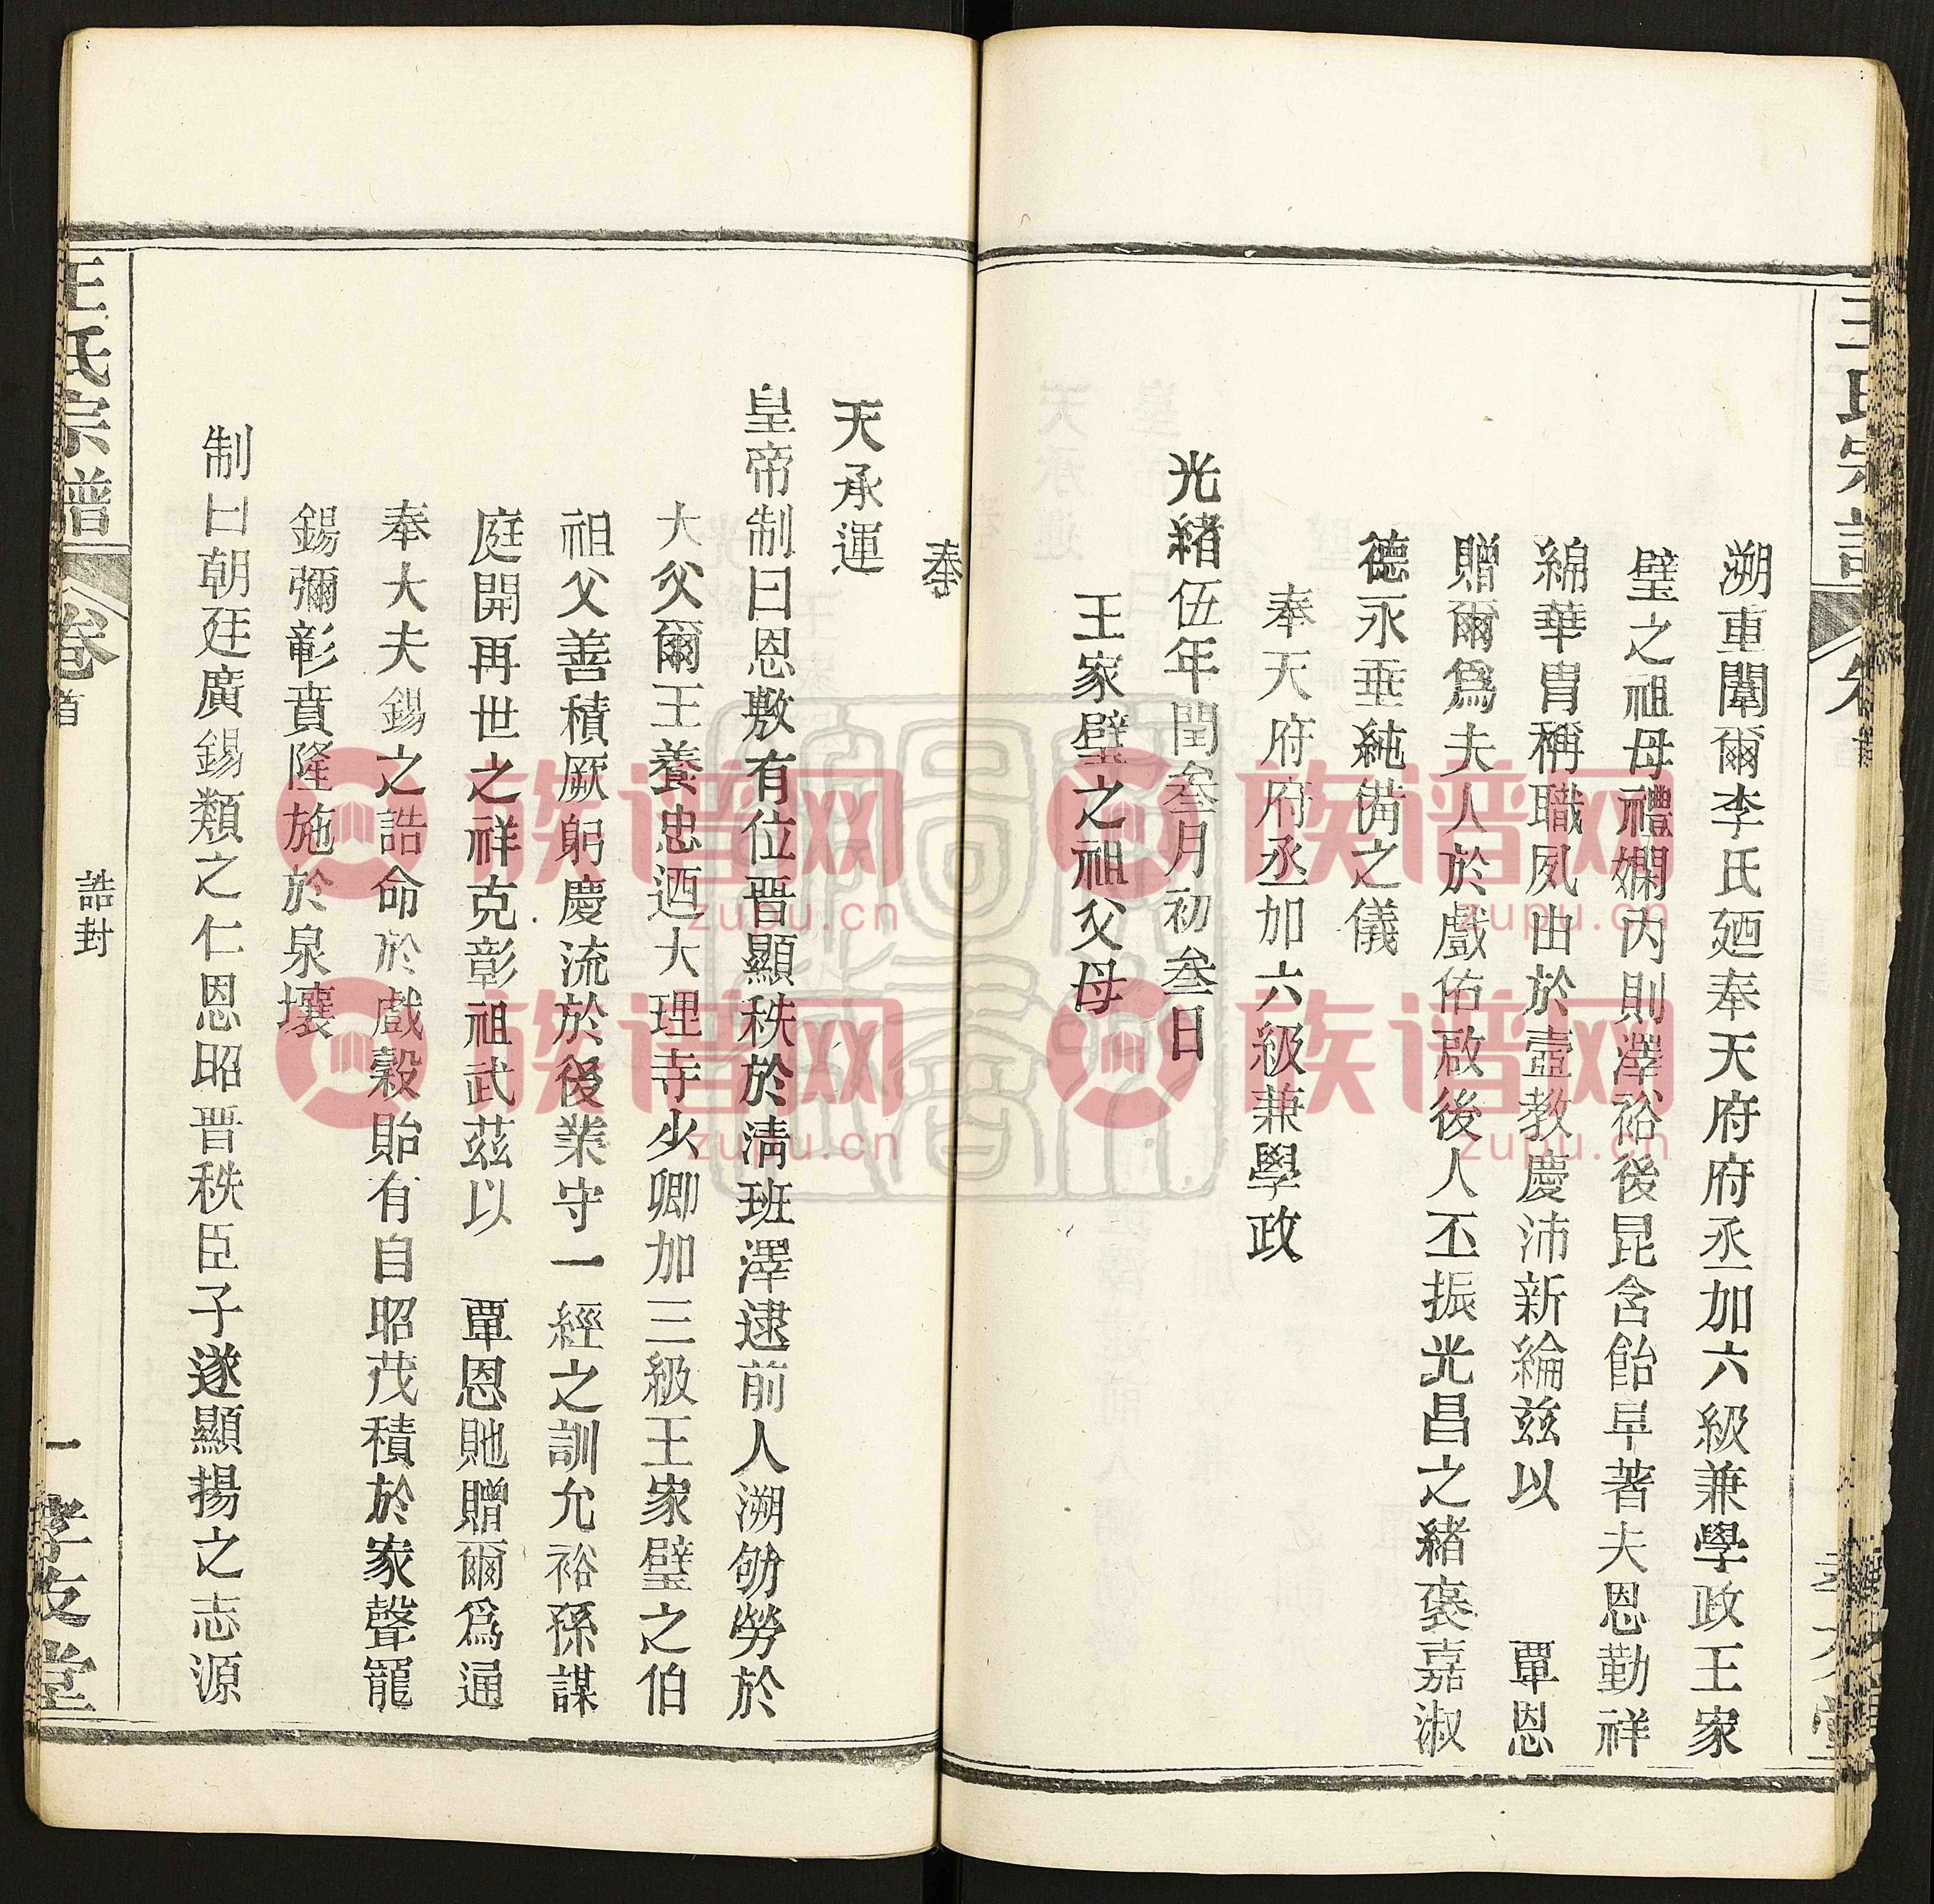 王氏宗譜
溯重闈爾李氏廼奉天府府丞加六級兼學政王家
璧之祖母禮嫻內則澤裕後昆含飴早著夫恩勤祥
綿華胄稱職夙由於壼教慶沛新綸兹以　覃恩
贈爾爲夫人於戲佑啟後人丕振光昌之緒褒嘉淑
德永垂純備之儀
奉天府府丞加六級兼學政
光緒伍年閏叁月初叁日
王家璧之祖父母
奉
天承運
皇帝制曰恩敷有位晋顯秩於清班澤逮前人溯劬勞於
大父爾王養忠迺大理寺少卿加三級王家璧之伯
祖父善積厥躬慶流於後業守一經之訓允裕孫謀
庭開再世之祥克彰祖武茲以　覃恩貤贈爾爲通
奉大夫錫之誥命於戲穀貽有自昭茂積於家聲寵
錫彌彰賁隆施於泉壤
制曰朝廷廣錫類之仁恩昭晋秩臣子遂顯揚之志源
王氏宗譜
卷首
誥封
一
孝友堂
族谱网
zupu.cn
族谱网
zupu.cn
族谱网
zupu.cn
族谱网
zupu.cn